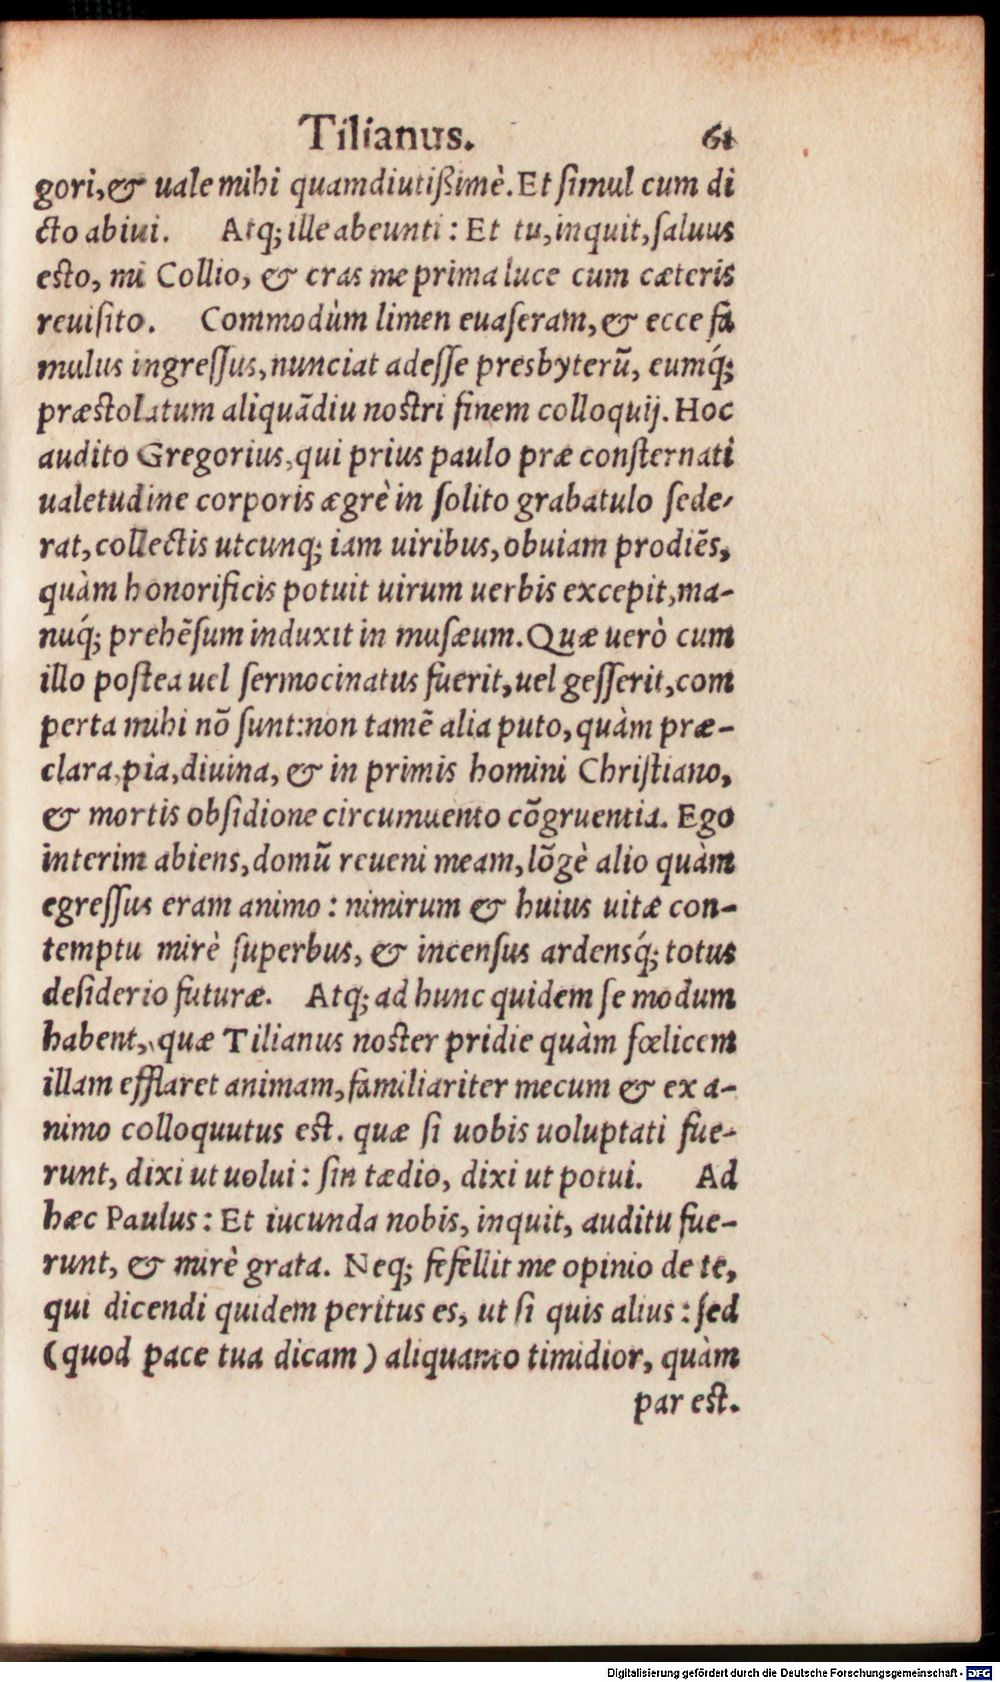 Tilianus. 61
gori, & uale mihi quamdiutißimè. Et ſimul cum di
cto abiui. Atq; ille abeunti: Et tu, inquit, ſaluus
eſto, mi Collio, & cras me prima luce cum cæteris
reuiſito. Commodùm limen euaſeram, & ecce fa
mulus ingreſſus, nunciat adeſſe presbyterũ, eumq́;
præſtolatum aliquãdiu noſtri finem colloquij. Hoc
audito Gregorius, qui prius paulo præ conſternati
ualetudine corporis ægrè in ſolito grabatulo ſede-
rat, collectis utcunq; iam uiribus, obuiam prodiẽs,
quàm honorificis potuit uirum uerbis excepit, ma-
nuq́; prehẽſum induxit in muſæum. Quæ uerò cum
illo poſtea uel ſermocinatus fuerit, uel geſſerit, com
perta mihi nõ ſunt: non tamẽ alia puto, quàm præ-
clara, pia, diuina, & in primis homini Chriſtiano,
& mortis obſidione circumuento cõgruentia. Ego
interim abiens, domũ reueni meam, lõgè alio quàm
egreſſus eram animo: nimirum & huius uitæ con-
temptu mirè ſuperbus, & incenſus ardensq́; totus
deſiderio futuræ. Atq; ad hunc quidem ſe modum
habent, quæ Tilianus noſter pridie quàm fœlicem
illam efflaret animam, familiariter mecum & ex a-
nimo colloquutus eſt. quæ ſi uobis uoluptati fue-
runt, dixi ut uolui: ſin tædio, dixi ut potui. Ad
hæc Paulus: Et iucunda nobis, inquit, auditu fue-
runt, & mirè grata. Neq; fefellit me opinio de te,
qui dicendi quidem peritus es, ut ſi quis alius: ſed
(quod pace tua dicam) aliquanto timidior, quàm
par eſt.
Digitalisierung gefördert durch die Deutsche Forschungsgemeinschaft - DFG